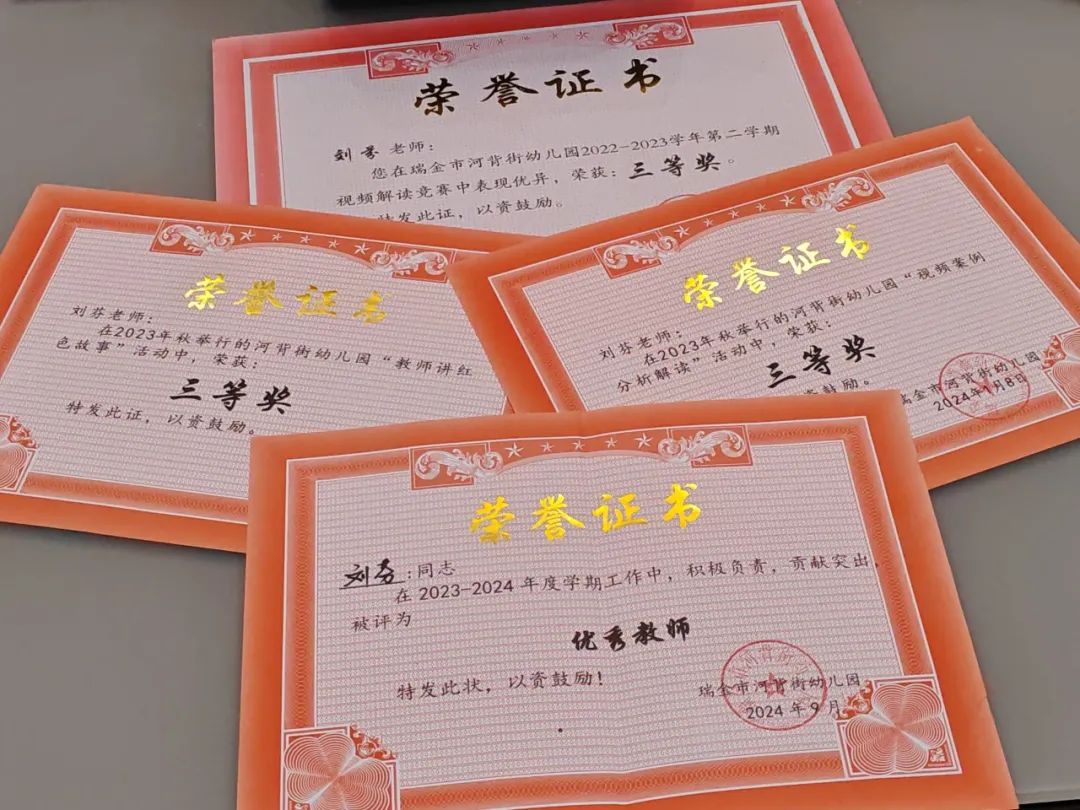 荣誉证书
刘芬老师：
您在瑞金市河背街幼儿园2022-2023学年第二学期
视频解读竞赛中表现优异，荣获：三等奖。
特发此证，以资鼓励。
荣誉证书
刘芬老师：
在2023年秋举行的河背街幼儿园“教师讲红
色故事”活动中，荣获：
三等奖
特发此证，以资鼓励。
荣誉证书
刘芬老师：
在2023年秋举行的河背街幼儿园“视频案例
分析解读”活动中，荣获：
三等奖
资鼓励。
瑞金市河背街幼儿园
2024年1月8日
荣誉证书
刘芬：同志
在 2023-2024 年度学期工作中，积极负责，贡献突出，
被评为
优秀教师
特发此状，以资鼓励！
瑞金市河背街幼儿园
2024 年 9 月